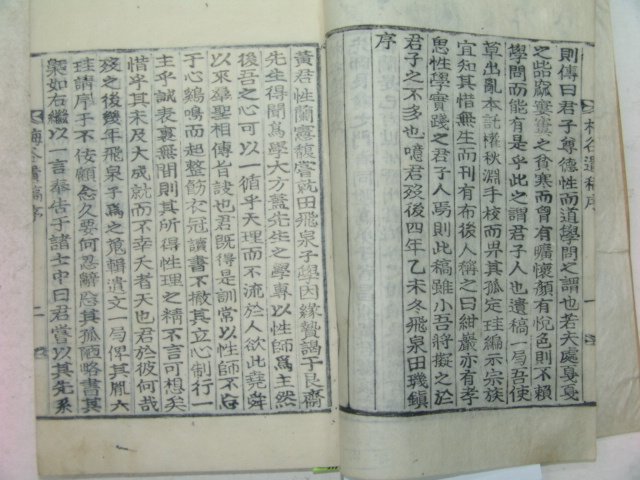 則傳曰君子尊德性而道學問之謂也若夫處戔戔
之喦竄寞寞之貧寒而曾有曠懷顔有悅色則不賴
學問而能有是乎此之謂君子人也遺稿一局吾使
草出亂本託懽秋淵手校而畀其孤定珪編示宗族
宜知其惜無生而刊有布後人稱之曰紺巖亦有孝
思性學實踐之君子人焉則此稿雖小吾將擬之於
君子之不多也噫君歿後四年乙未冬飛泉田璣鎭
序
黃君性蘭露馥嘗就田飛泉子學因緣贄謁于艮齋
先生得聞爲學大方蓋先生之學專以性師爲主然
後吾之心可以一循乎天理而不流於人欲此堯舜
以來羣聖相傳旨訣也君旣得是訓常以性師不忘
于心鷄鳴而起整飭衣冠讀書不撤其立心制行一
主乎誠表裏無間則其所得性理之精不言可想矣
惜乎其未及大成就而不幸夭者天也君於彼何哉
歿之後幾年飛泉子爲之蒐輯遺文一局俾其胤六
珪請序于不佞顧念久要何忍辭啓其孤陋略書其
槩如右繼以一言奉告于諸士中曰君嘗以其先系
梅谷遺稿序
二